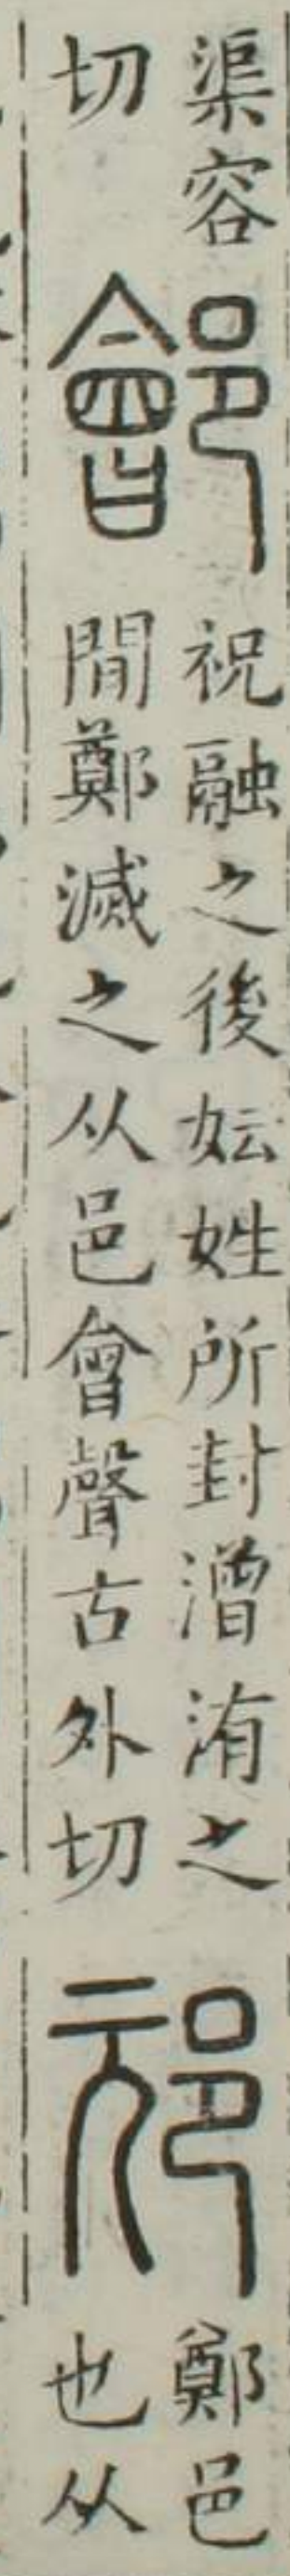 渠容
切
鄶
祝融之後妘姓所封潧洧之
間鄭滅之从邑會聲古外切
邧
鄭邑
也从